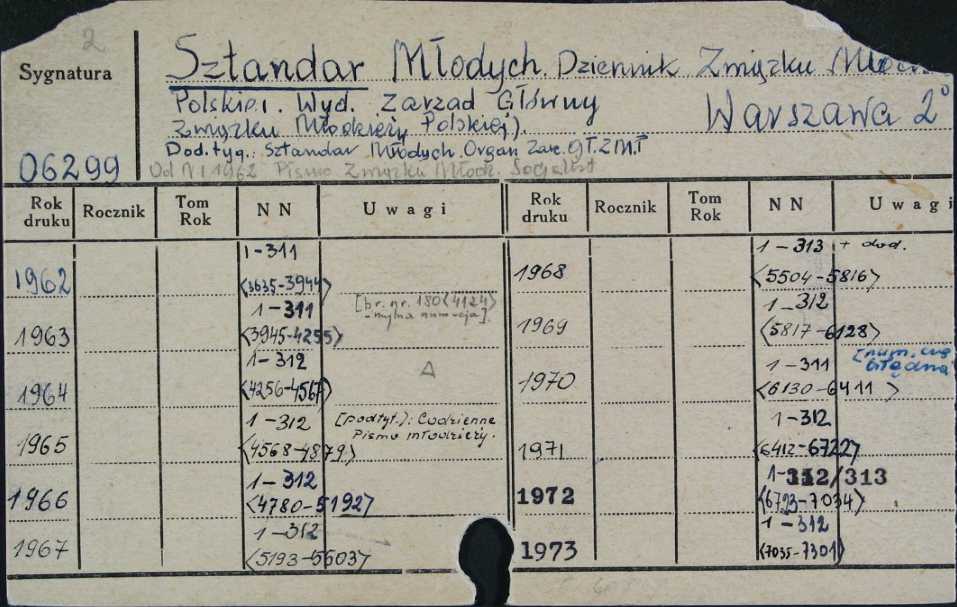 2
Sygnatura
Sztandar Młodych. Dziennik Związku
Polskiej. Wyd. Zarząd Główny
Warszawa 2°
Związku Młodzieży Polskiej).
Dod. tyg.: Sztandar Młodych. Organ Zarz. Gł. ZMP
06299
Od N 1 1962 Pismo Związku Młodz. Socjalist
Rok druku Rocznik Tom Rok NN Uwagi Rok druku Rocznik Tom Rok NN Uwagi
1962 1-311 <3635-3944>
1963 1-311 <3945-4255> [br. nr. 180<4124> - mylna numeracja].
1964 1-312 <4256-4567> A
1965 1-312 <4568-4879> [podtyt.): Codzienne Pismo młodzieży.
1966 1-312 <4780-5192>
1967 1-312 <5193-5603>
1968 1-313 + dod. <5504-5816>
1969 1-312 <5817-6128>
1970 1-311 <6130-6411> [num. błędna
1971 1-312 <6412-6722>
1972 1-312/313 <6723-7034>
1973 1-312 <7035-7301>